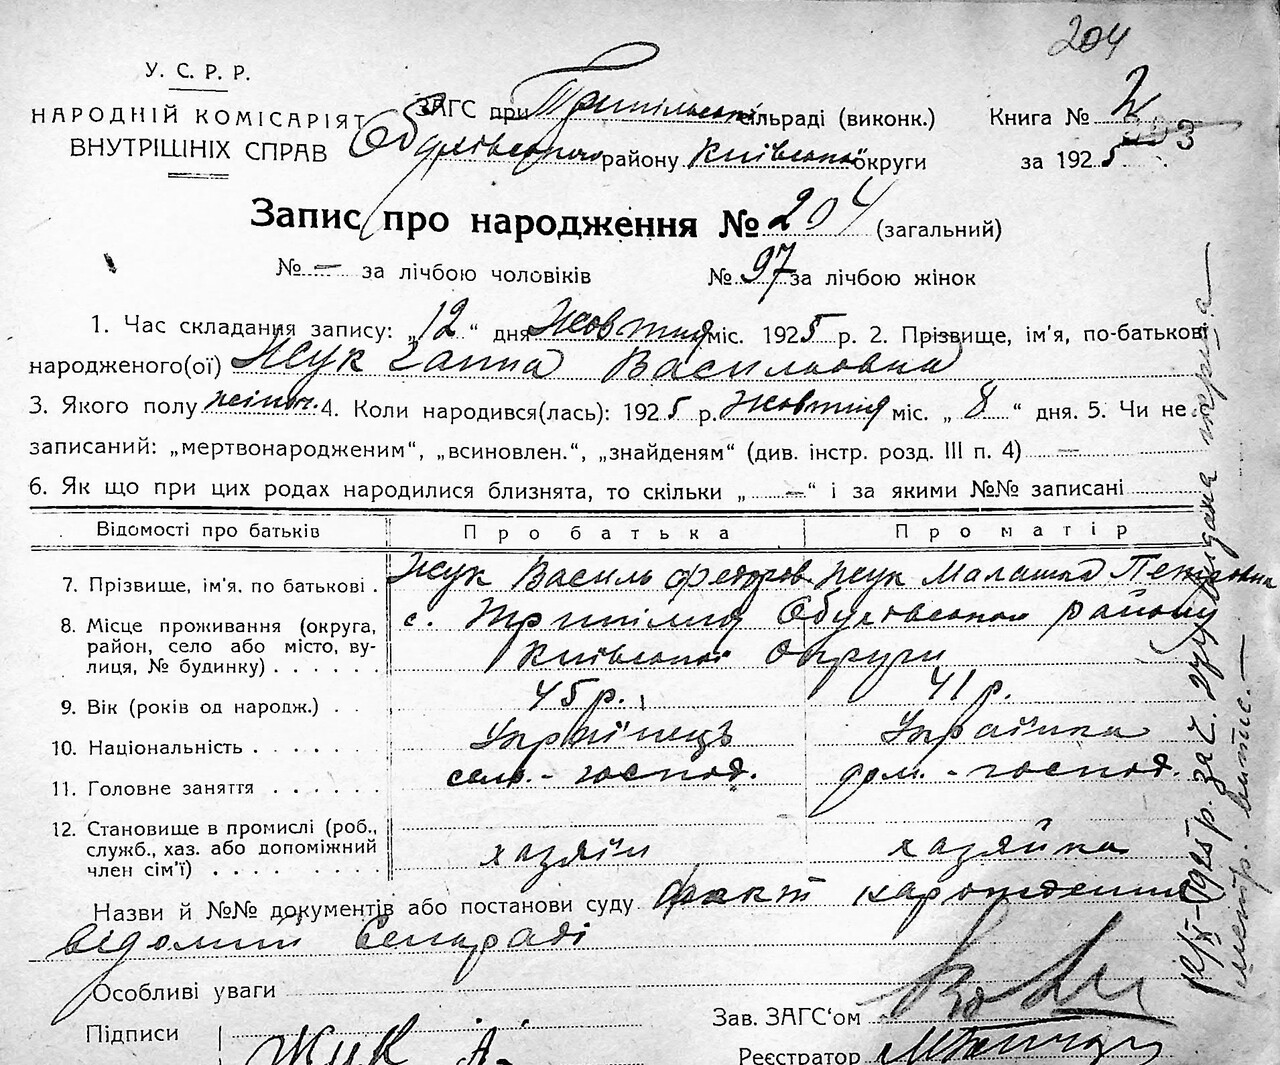 204
У. С. Р. Р.
НАРОДНІЙ КОМІСАРІЯТ
ВНУТРІШНІХ СПРАВ
ЗАГС при Трипільській сільраді (виконк.)
Обухівського району Київської округи
Книга № 2
за 1925
Запис про народження № 204 (загальний)
№ — за лічбою чоловіків № 97 за лічбою жінок
1. Час складання запису: „12“ дня Жовтня міс. 1925 р. 2. Прізвище, ім'я, по-батькові
народженого(ої) Жук Ганна Васильовна
3. Якого полу жіноч. 4. Коли народився(лась): 1925 р. Жовтня міс. „8“ дня. 5. Чи не
записаний: „мертвонародженим“, „всиновлен.“, „знайденям“ (див. інстр. розд. III п. 4) —
6. Як що при цих родах народилися близнята, то скільки „—“ і за якими №№ записані
Відомості про батьків Про батька Про матір
7. Прізвище, ім'я, по батькові . Жук Василь Федоров. Жук Малашка Петровна
8. Місце проживання (округа, район, село або місто, вулиця, № будинку) . . . . . с. Трипілля Обухівського району
Київської округи
9. Вік (років од народж.) . . 45 р. 41 р.
10. Національність . . . . . . Українець Українка
11. Головне заняття . . . . . . сель.-господ. дом.-господ.
12. Становище в промислі (роб.,
служб., хаз. або допоміжний
член сім'ї) . . . . . . . . хазяїн хазяйка
Назви й №№ документів або постанови суду факт народження
відомий Сельраді
Особливі уваги
Підписи Жук А.
Зав. ЗАГС'ом
Реєстратор
12/XI-1925 р. за ч. видана
метр. випис.—